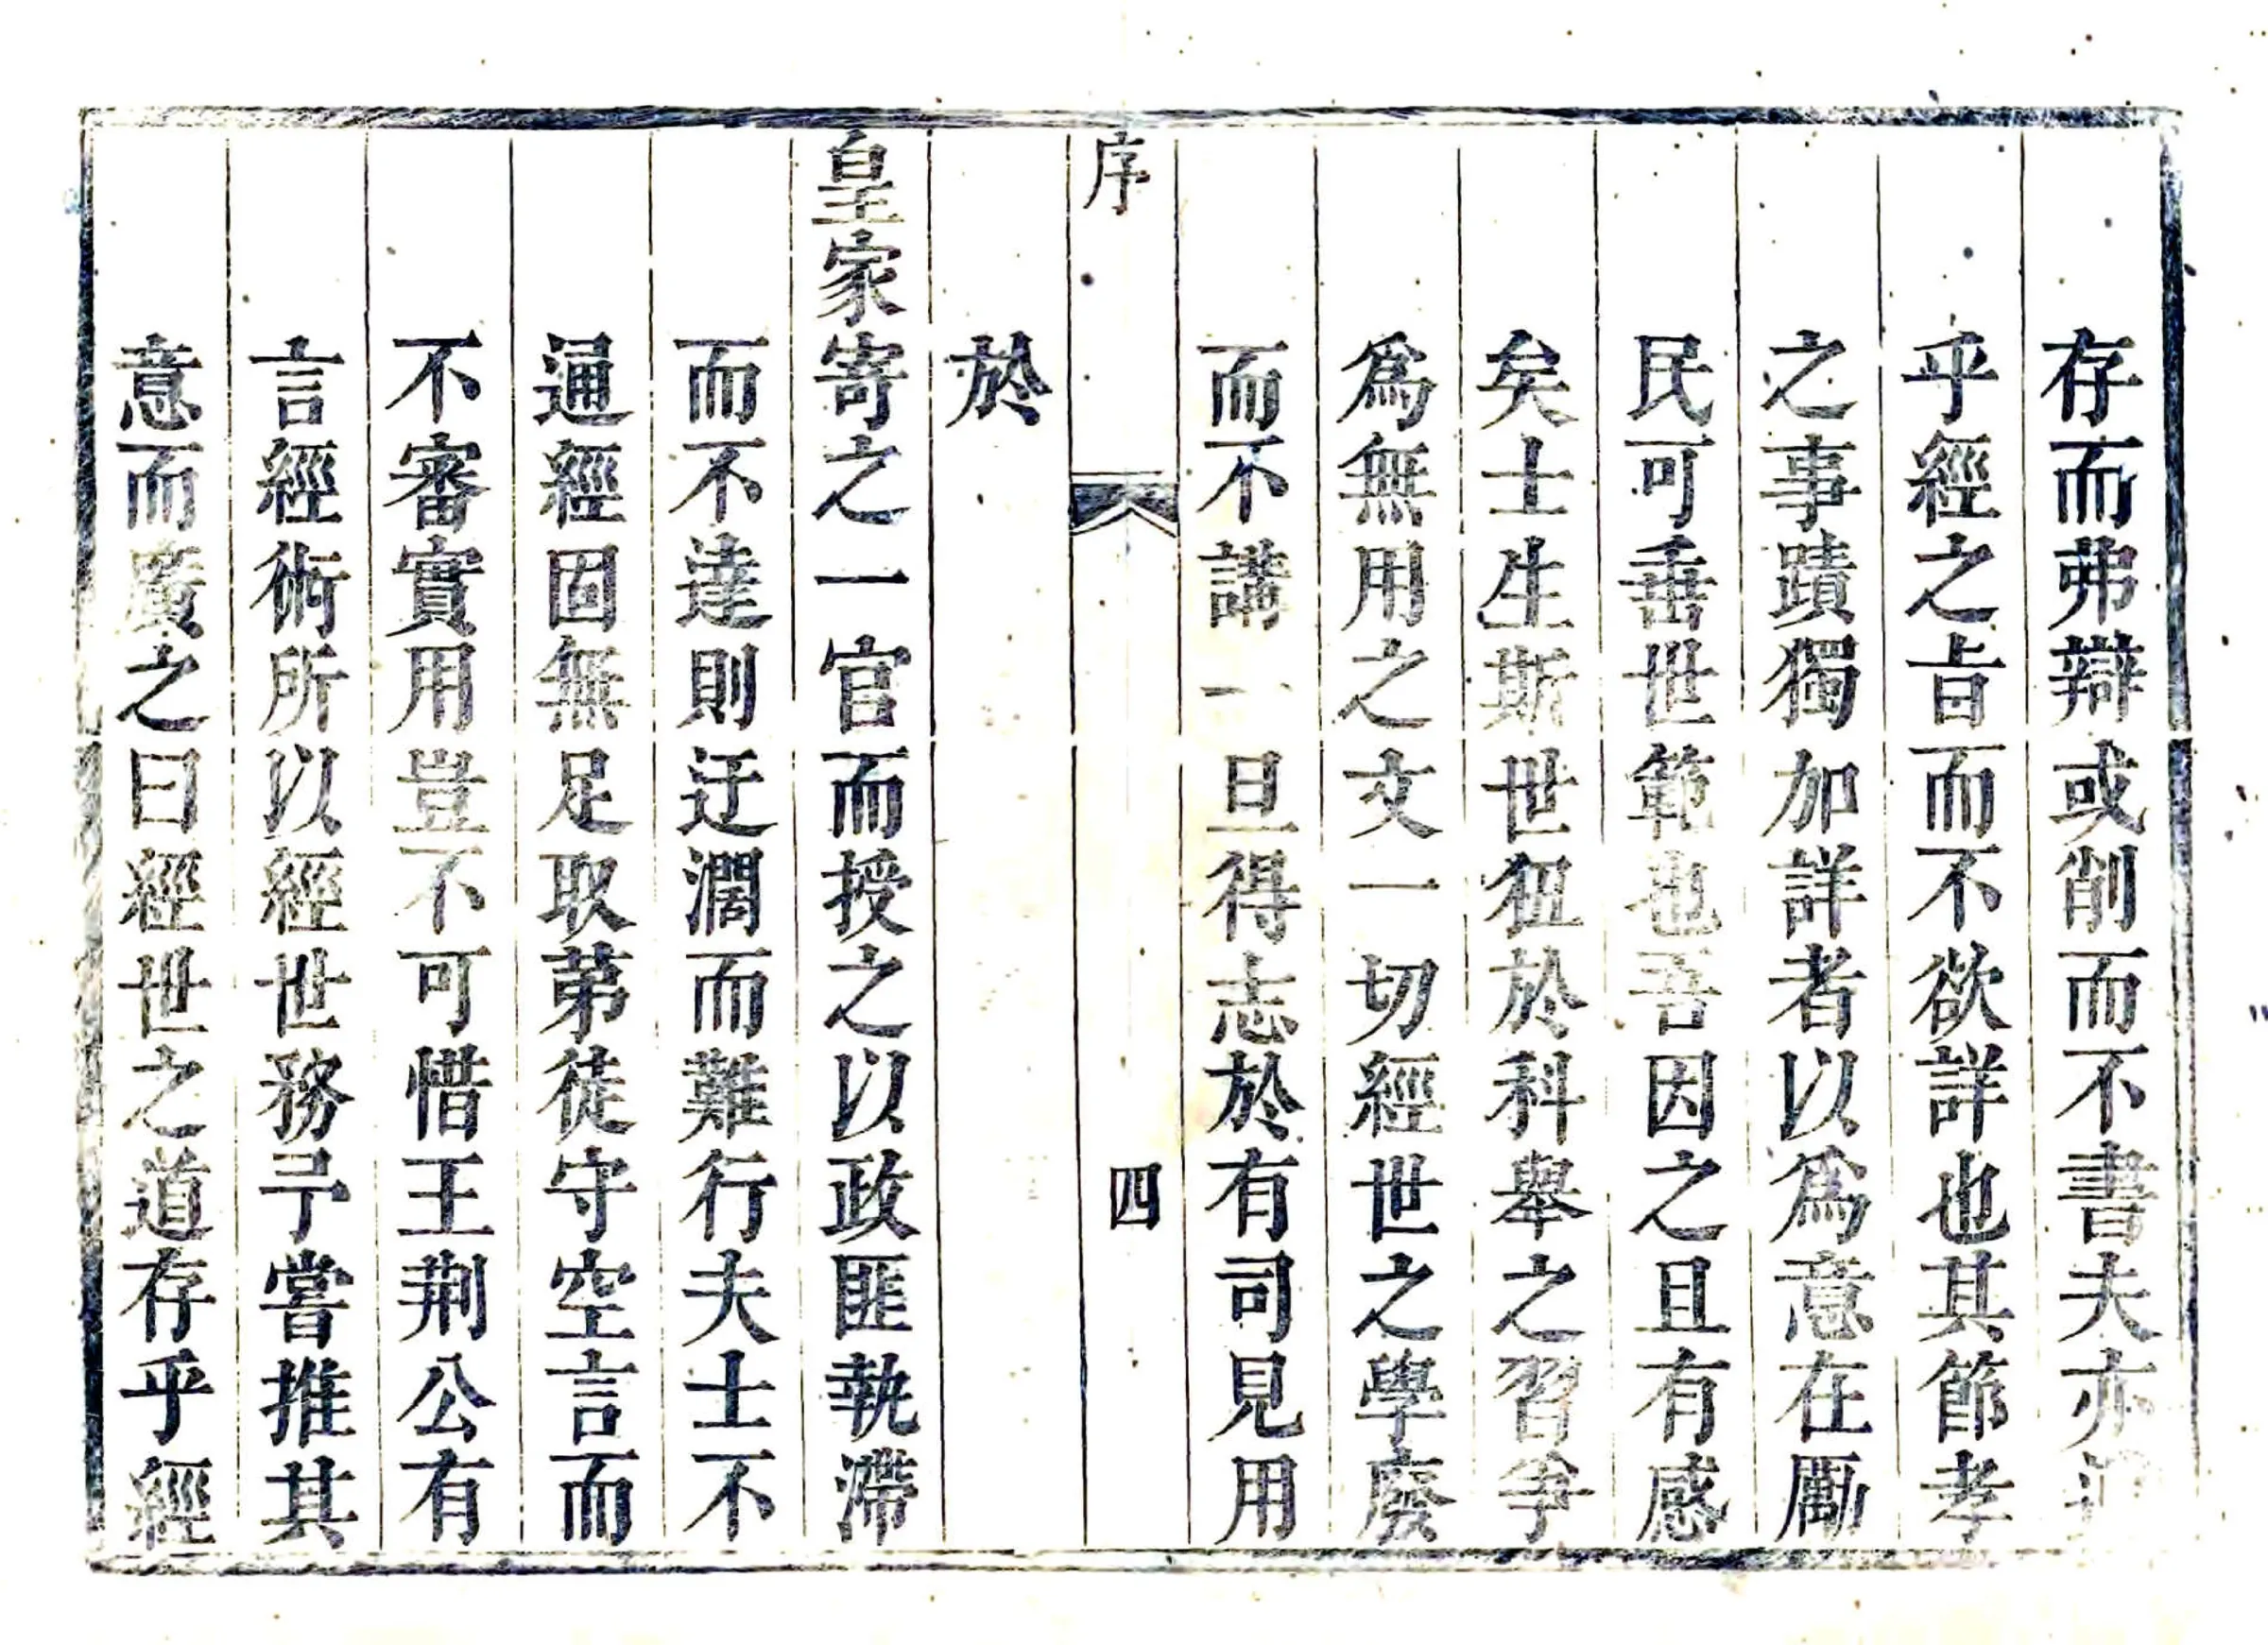 存而弗辯或削而不書夫亦
乎經之旨而不欲詳也其節孝
之事蹟獨加詳者以爲意在厲
民可垂世範也吾因之且有感
矣士生斯世狃於科舉之習爭
爲無用之文一切經世之學廢
而不講一旦得志於有司見用
序
四
於
皇家寄之一官而授之以政匪執滯
而不達則迂濶而難行夫士不
通經固無足取苐徒守空言而
不審實用豈不可惜王荆公有
言經術所以經世務予嘗推其
意而廣之曰經世之道存乎經